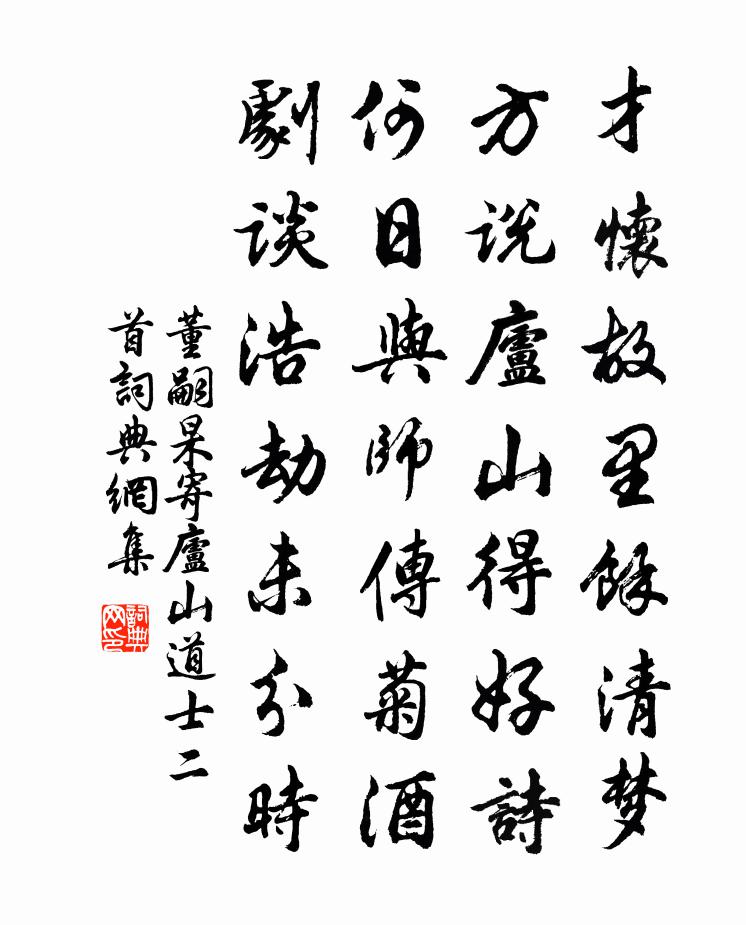 才懷故里餘清梦
方说廬山得好詩
何日與師傳菊酒
劇談浩劫未分時
董嗣杲寄廬山道士二
首詞典網集
詞典
网印